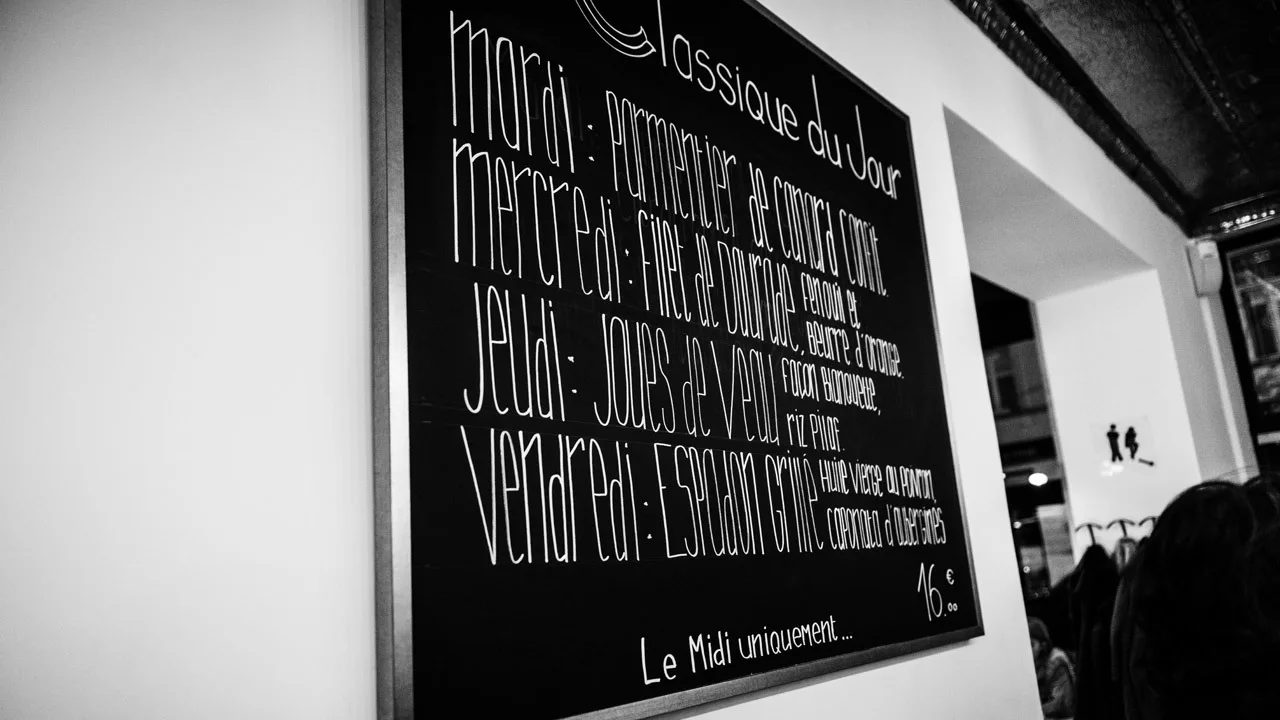 Classique du Jour
mardi : Parmentier de canard confit
mercredi : Filet de Daurade, Fenouil et
Beurre d'orange.
Jeudi : Joues de Veau Façon Blanquette,
riz Pilaf.
Vendredi : Espadon Grillé Huile Vierge au Poivron,
caponata d'aubergines
16.€00
Le Midi uniquement...